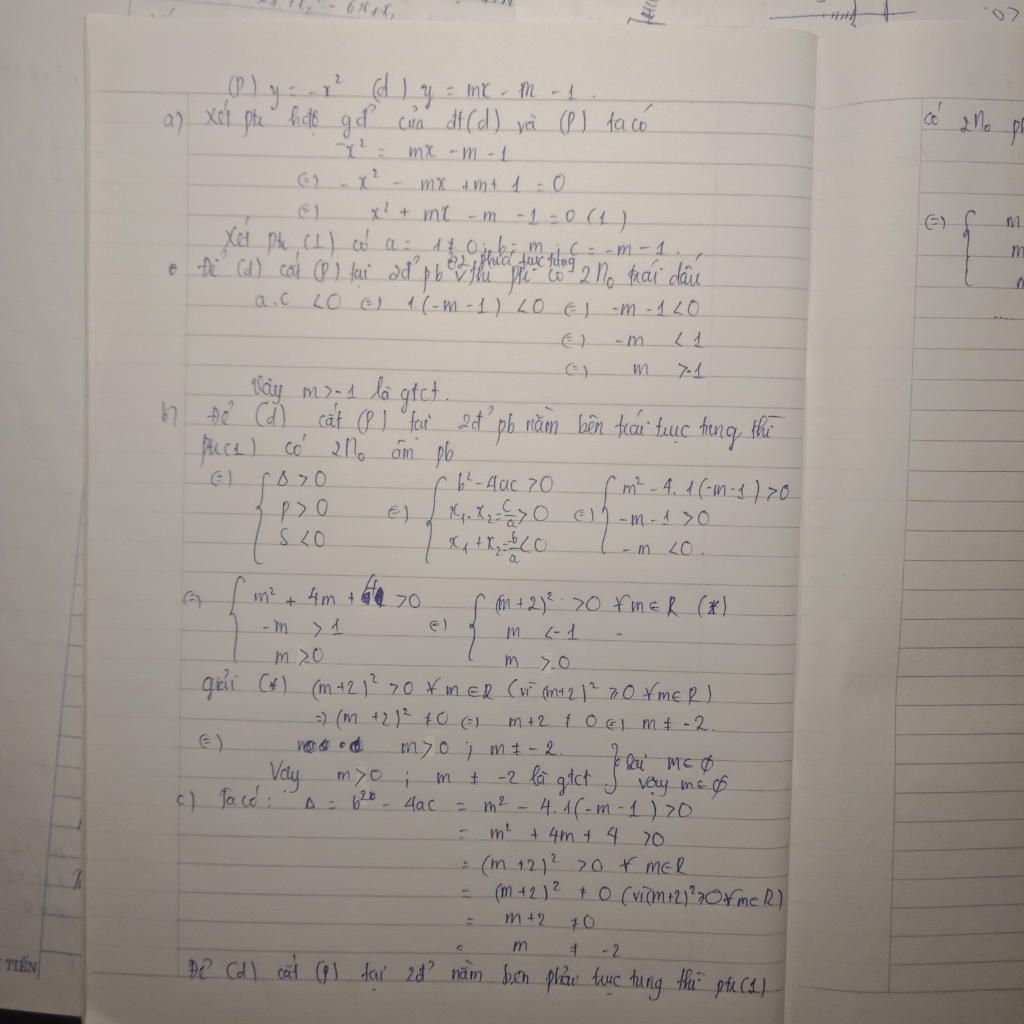 (P) y = -x² (d) y = mx - m - 1.
a) Xét pt hđộ gđ của đt(d) và (P) ta có
-x² = mx - m - 1
(=) -x² - mx + m + 1 = 0
(=) x² + mx - m - 1 = 0 (1)
Xét pt (1) có a = 1 ≠ 0; b = m; c = -m - 1.
ở 2 phía trục tung
Để (d) cắt (P) tại 2đ' pb v thì pt có 2No trái dấu
a.c < 0 (=) 1(-m - 1) < 0 (=) -m - 1 < 0
(=) -m < 1
(=) m > -1
Vậy m > -1 là gtct.
b) Để (d) cắt (P) tại 2đ' pb nằm bên trái trục tung thì
pt(1) có 2No âm pb
(=) { Δ > 0 { b² - 4ac > 0 { m² - 4.1(-m-1) > 0
P > 0 (=) x₁.x₂ = c/a > 0 (=) -m - 1 > 0
S < 0 x₁ + x₂ = -b/a < 0 -m < 0.
(=) { m² + 4m + 4 > 0 { (m+2)² > 0 ∀m∈R (*)
-m > 1 (=) m < -1
m > 0 m > 0
giải (*) (m+2)² > 0 ∀m∈R (vì (m+2)² ≥ 0 ∀m∈R)
=> (m+2)² ≠ 0 (=) m+2 ≠ 0 (=) m ≠ -2.
(=) m > 0; m ≠ -2. } m∈∅
Vậy m > 0; m ≠ -2 là gtct } vậy m∈∅
c) Ta có: Δ = b² - 4ac = m² - 4.1(-m-1) > 0
= m² + 4m + 4 > 0
= (m+2)² > 0 ∀m∈R
= (m+2)² ≠ 0 (vì (m+2)² ≥ 0 ∀m∈R)
= m+2 ≠ 0
= m ≠ -2
Để (d) cắt (P) tại 2đ' nằm bên phải trục tung thì pt(1)
có 2No
(=) { m
m
TIẾN